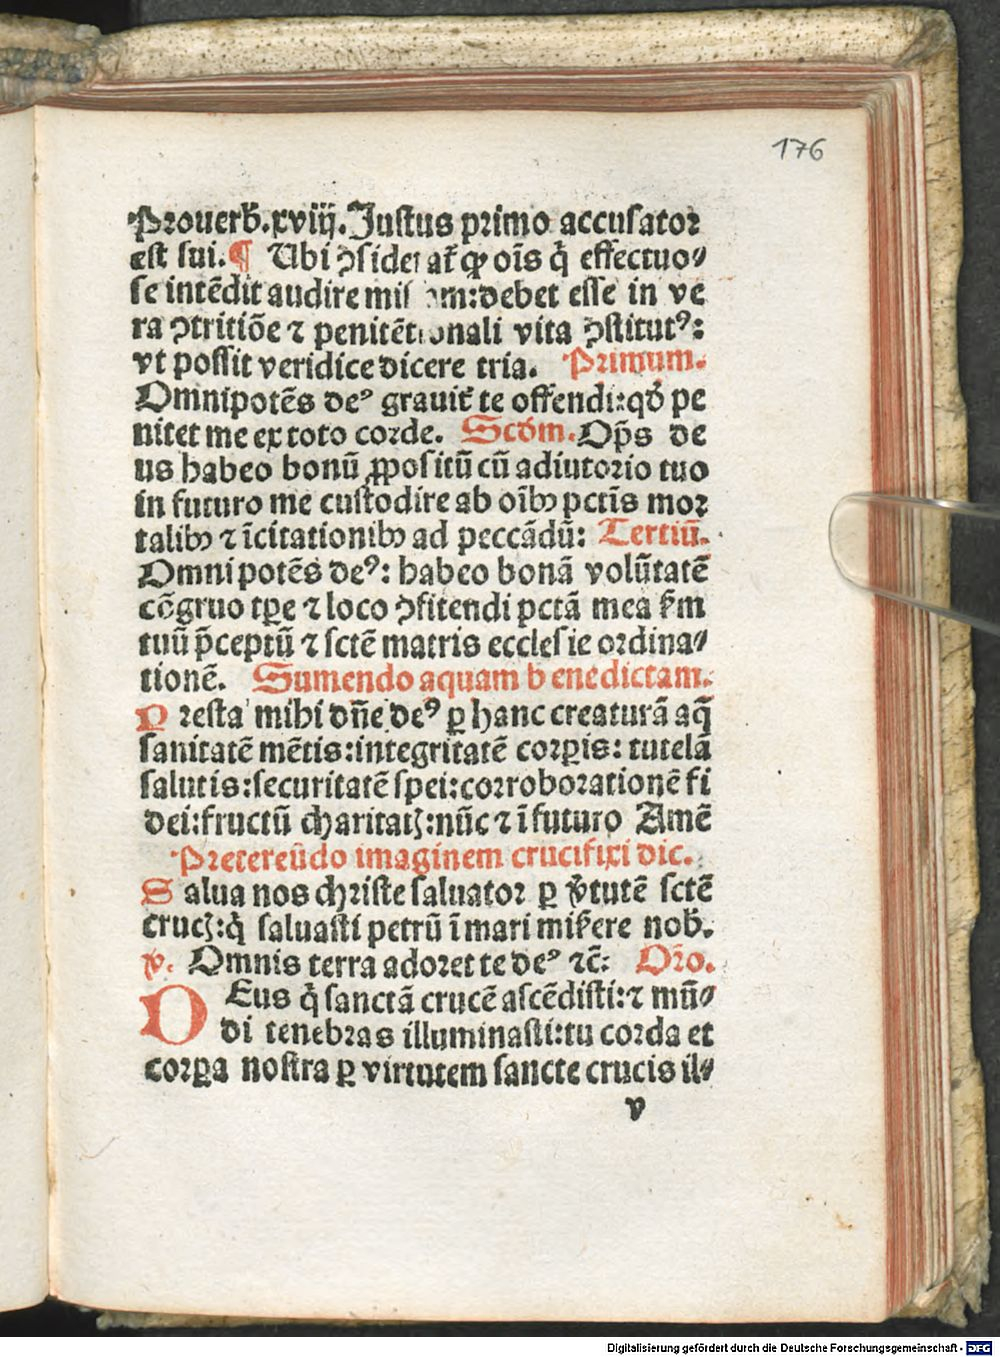 176
Prouerb̄.xviij. Justus primo accusator
est sui. ¶ Ubi ꝯsideratꝛ ꝙ oīs q̇ effectuo⸗
se intēdit audire missam: debet esse in ve
ra ꝯtritiōe ⁊ penitētionali vita ꝯstitutꝰ:
vt possit veridice dicere tria. Primum.
Omnipotēs deꝰ grauit̄ te offendi: qd̄ pe
nitet me ex toto corde. Scd̄m. Op̄s de
us habeo bonū ꝓpositū cū adiutorio tuo
in futuro me custodire ab oībꝰ pctīs mor
talibꝰ ⁊ īcitationibꝰ ad peccādū: Tertiū.
Omnipotēs deꝰ: habeo bonā volūtatē
cōgruo tꝑe ⁊ loco ꝯfitendi pctā mea ẜm
tuū p̄ceptū ⁊ sctē matris ecclesie ordina⸗
tionē. Sumendo aquam benedictam.
Presta mihi dn̄e deꝰ ꝑ hanc creaturā aq̄
sanitatē mētis: integritatē corꝑis: tutelā
salutis: securitatē spei: corroborationē fi
dei: fructū charitatꝭ: nūc ⁊ ī futuro Amē
Pretereūdo imaginem crucifixi dic.
Salua nos christe saluator ꝑ v̄tutē sctē
crucꝭ: q̇ saluasti petrū ī mari miẜere nob̄.
℣. Omnis terra adoret te deꝰ ⁊c̄: Oro.
DEus q̇ sanctā crucē ascēdisti: ⁊ mū⸗
di tenebras illuminasti: tu corda et
corꝑa nostra ꝑ virtutem sancte crucis il⸗
v
Digitalisierung gefördert durch die Deutsche Forschungsgemeinschaft - DFG